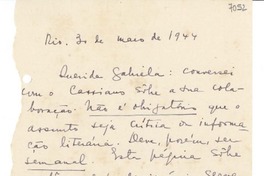 7052
Rio, 30 de maio de 1944
Querida Gabriela: conversei
com o Cassiano sôbre a sua cola-
boração. Não é obrigatório que o
assunto seja crítica ou informa-
ção literaria. Deve, porém, ser
semanal. Esta página sôbe